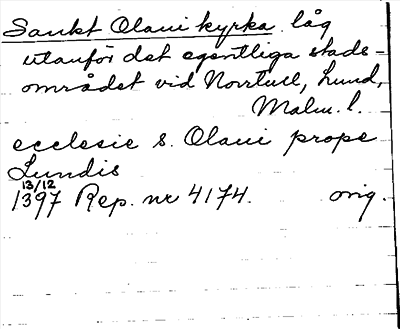 Sankt Olaui kyrka låg
utanför det egentliga stads-
området vid Norrtull, Lund,
Malm. l.
ecclesie s. Olaui prope
Lundis
13/12
1397 Rep. nr 4174. orig.